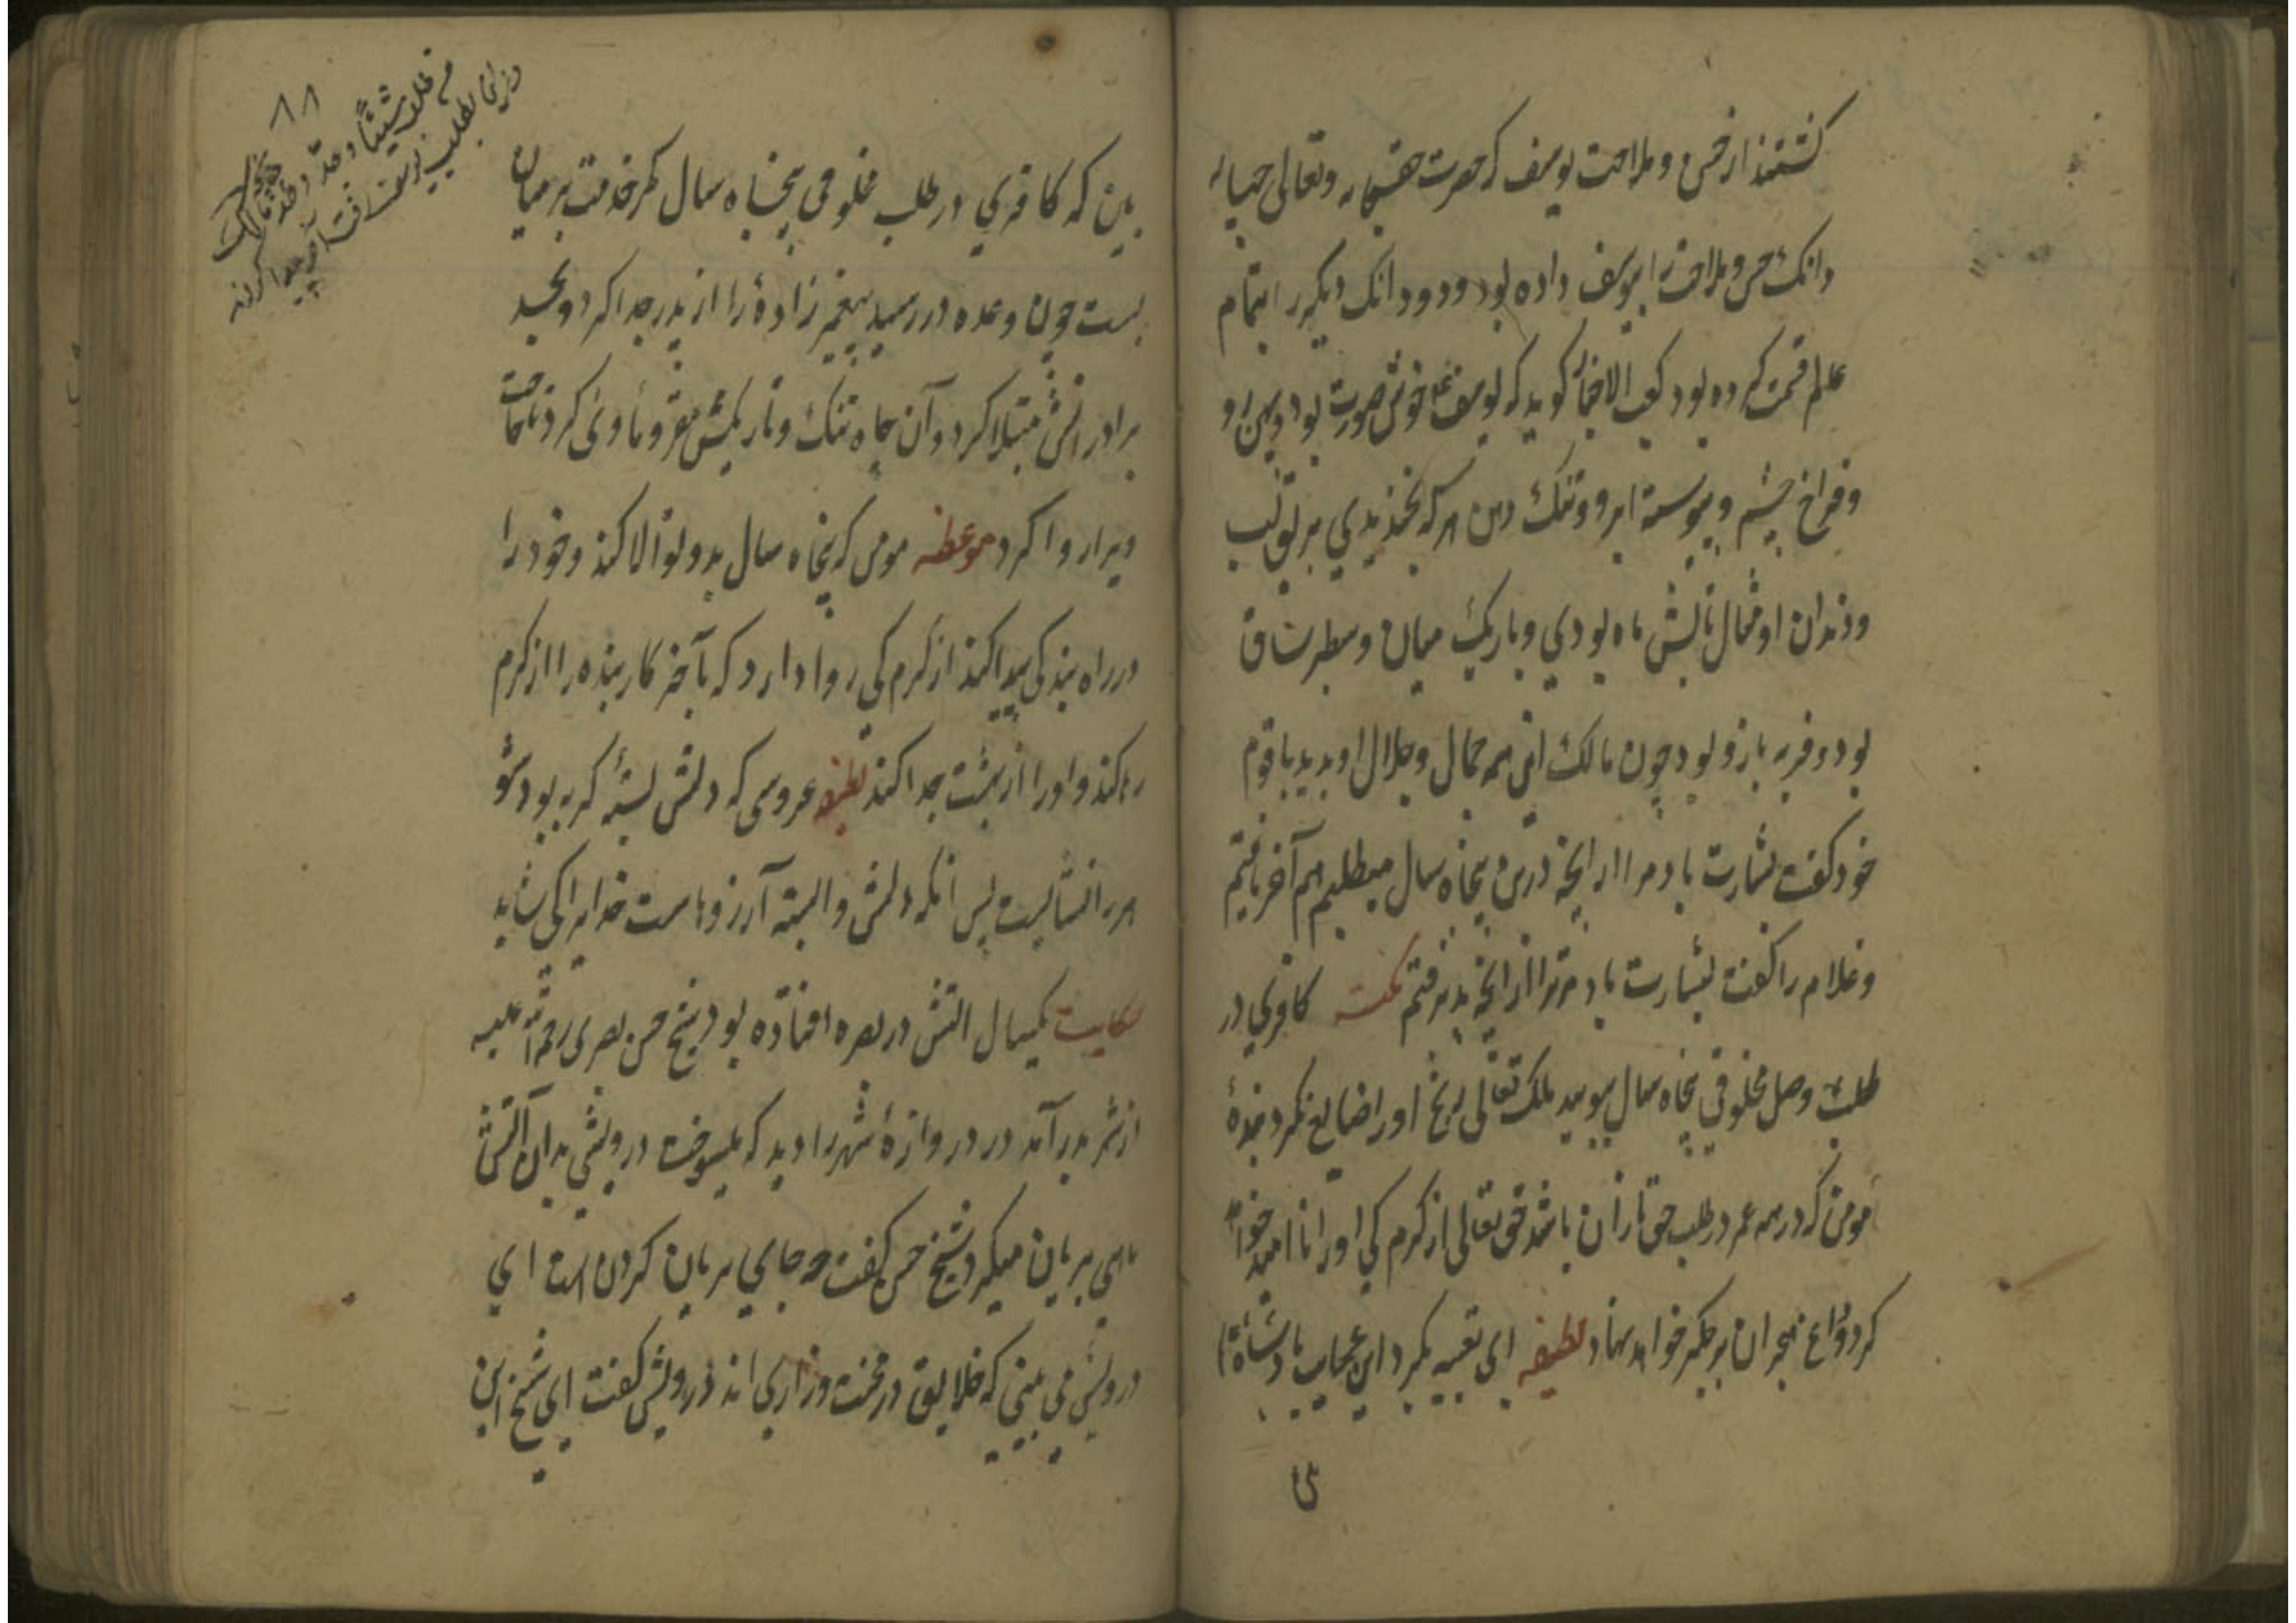 گشتند از حسن و ملاحت یوسف که حضرت حق سبحانه و تعالی
دانک حسن و ملاحت را بیوسف داده بود و دو دانک دیگر را بتمام
عالم قسمت کرده بود کعب الاخبار کوید که یوسف خوش صورت بود و
و فراخ چشم و پیوسته ابرو و تنک دهن هر که بخندیدی برق لب
و دندان او مثال تابش ماه بودی و باریک میان و سطبر ساق
بود و فربه بازو بود چون مالک این همه جمال و جلال او بدید با قوم
خود کفت بشارت باد مرا از آنچه درین پنجاه سال میطلبیم هم آخر یافتیم
و غلام را کفت بشارت باد مر ترا از آنچه پذیرفتم نکته کافری در
طلب وصل مخلوقی پنجاه سال پویید ملک تعالی رنج او را ضایع نکرد بندهٔ
مومن که در همه عمر در طلب حق تازان باشد حق تعالی از کرم کی او را ناامید خواهد
کرد و داغ هجران بر جکر خواهد نهاد لطیفه ای تعبیه نکرد این عجایب پادشاه را
ای
۸۸
ببین که کافری در طلب مخلوقی پنجاه سال کمر خدمت بر میان
بست چون وعده در رسید پیغمبر زادهٔ را از پدر جدا کرد و بحسد
برادرانش مبتلا کرد و آن چاه تنک و تاریکش مقر و مأوی کرد تا حاجت
ویرا روا کرد موعظه مومن که پنجاه سال بدو تولا کند و خود را
در راه بندکی پیدا کند از کرم کی روا دارد که بآخر کار بنده را از کرم
رها کند و او را از بهشت جدا کند لطیفه عروسی که دلش بستهٔ کربه بود شو
هر را نشایست پس انکه دلش وابسته آرزوهاست خدایرا کی شاید
حکایت یکسال اتش در بصره افتاده بود شیخ حسن بصری رحمة الله علیه
از شهر بدر آمد در دروازهٔ شهر را دید که میسوخت درویشی بدان آتش
ماهی بریان میکرد شیخ حسن کفت چه جای بریان کردن است ای
درویش می بینی که خلایق در محنت و زاری اند درویش کفت ای شیخ این